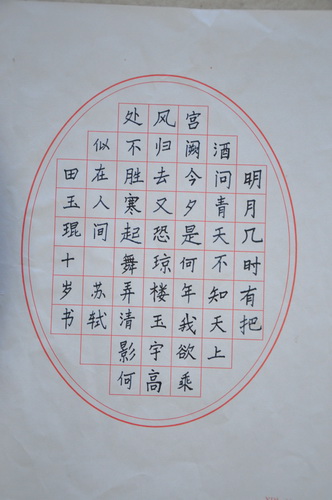 明月几时有把
酒问青天不知天上
宫阙今夕是何年我欲乘
风归去又恐琼楼玉宇高
处不胜寒起舞弄清影何
似在人间 苏轼
田玉琨十岁书